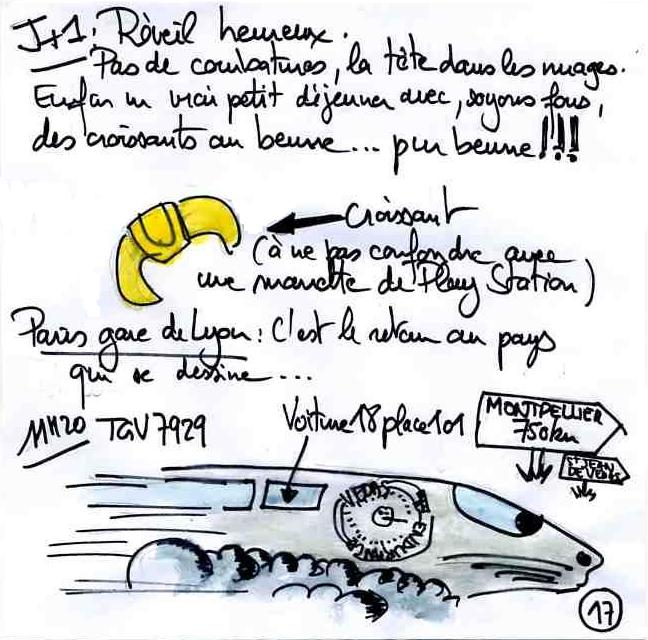 J+1: Réveil heureux.
Pas de courbatures, la tête dans les nuages.
Enfin un vrai petit déjeuner avec, soyons fous,
des croissants au beurre... pur beurre!!!
croissant
(à ne pas confondre avec
une manette de Play Station)
Paris gare de Lyon: C'est le retour au pays
qui se dessine...
11H20 TGV 7929
Voiture 18 place 101
MONTPELLIER
750km
ST JEAN
DE VEDAS
VEDAS
ENDURANCE
17